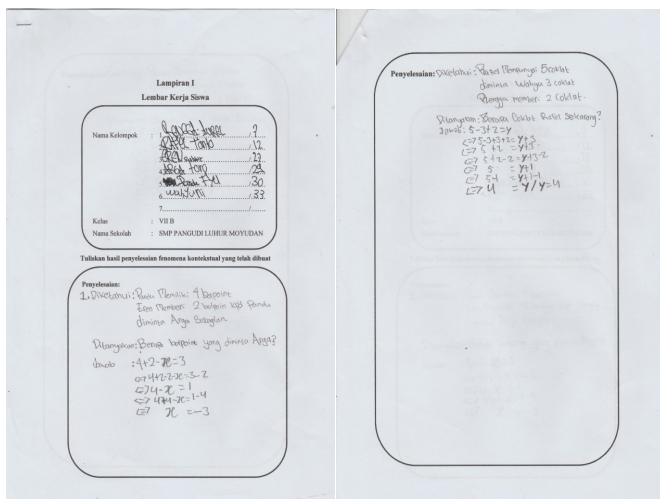 Lampiran I
Lembar Kerja Siswa
Nama Kelompok : 1. / 7
2. / 12
3. / 27
4. / 29
5. / 30
6. Wahyuni / 33
7. /
Kelas : VII B
Nama Sekolah : SMP PANGUDI LUHUR MOYUDAN
Tuliskan hasil penyelesaian fenomena kontekstual yang telah dibuat
Penyelesaian:
1. Diketahui: Pandu Memiliki 4 bolpoint
Eren Memberi 2 bolpoin kpd Pandu
diminta Angga Sebagian
Ditanyakan: Berapa bolpoint yang diminta Angga?
Jawab : 4+2-x=3
<=> 4+2-2-x=3-2
<=> 4-x = 1
<=> 4-4-x=1-4
<=> x = -3
Penyelesaian: Diketahui: Rafel Mempunyai 5 coklat
diminta Wahyu 3 coklat
Rangga memberi 2 Coklat.
Ditanyakan: Berapa Coklat Rafel Sekarang?
Jawab: 5-3+2=y
<=> 5-3+3+2=y+3
<=> 5 +2 =y+3
<=> 5+2-2=y+3-2
<=> 5 =y+1
<=> 5-1 =y+1-1
<=> 4 =y / y=4